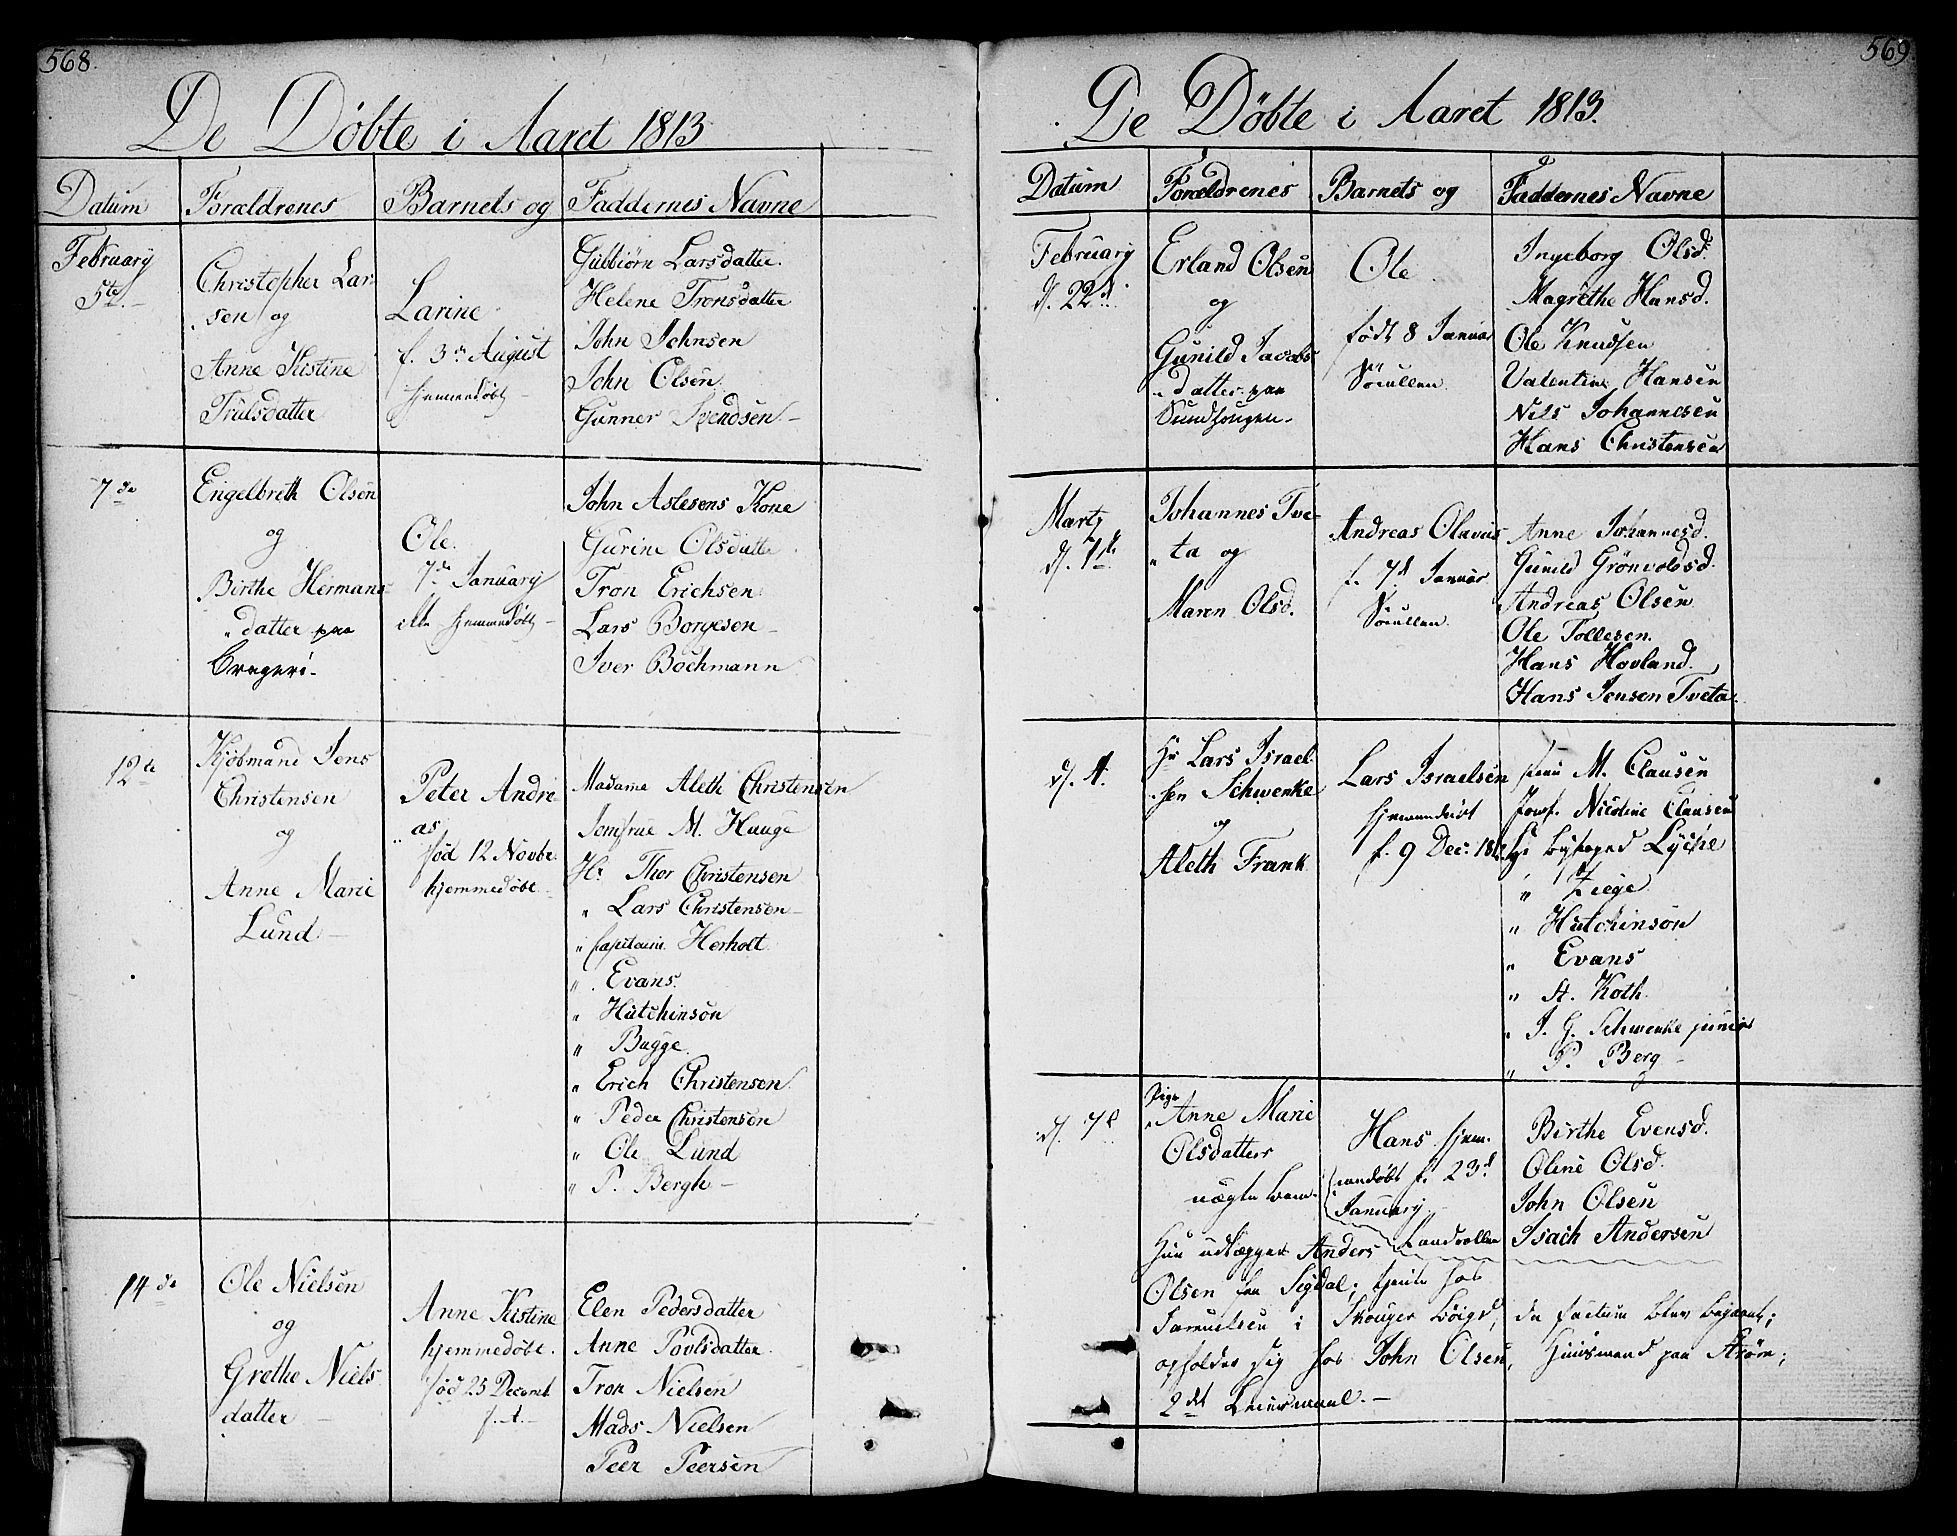 568.
De Döbte i Aaret 1813
Datum
Forældrenes
Barnets og
Faddernes Navne
February
5te
Christopher Lar
sen og
Anne Kistine
Trulsdatter
Larine
f. 3de August
hjemmedöbt
Gulbiörn Larsdatter
Helene Tronsdatter
John Johnsen
John Olsen
Gunner Svendsen
7de
Engelbreth Olsen
og
Birthe Hermans
datter paa
Ole.
7de January
ikke hjemmedöbt
John Aslesens Kone
Gurine Olsdatter
Tron Erichsen
Lars Borgesen
Iver Bochmann
12te
Kjöbmand Jens
Christensen
og
Anne Marie
Lund
Peter Andre
as
född 12 Novbr.
hjemmedöbt
Madame Aleth Christensen
Jomfrue M. Hauge
Hr. Thor Christensen
" Lars Christensen
" Capitain Herholt
" Evans
" Hutchinson
" Bugge
" Erich Christensen
" Peder Christensen
" Ole Lund
" P. Bergh
14de
Ole Nielsen
og
Grethe Niels
datter
Anne Kistine
hjemmedöbt.
föd 25 Decemb
f. A.
Elen Pedersdatter
Anne Povlsdatter
Tron Nielsen
Mads Nielsen
Peer Peersen
569.
De Döbte i Aaret 1813.
Datum
Forældrenes
Barnets og
Faddernes Navne
February
d. 22d
Erland Olsen
og
Gunild Jacobs
datter paa
Ole
född 8 Januar
Ingeborg Olsd.
Magrethe Hansd.
Ole Knudsen
Valentin Hansen
Nils Johannesen
Hans Christensen
Marty
d. 1te
Johannes Tve
ta og
Maren Olsd.
Andreas Olavus
f. 7d Januar
Anne Johannesd.
Gunild Grönvoldsd.
Andreas Olsen
Ole Tollesen.
Hans Hovland
Hans Jensen Tveta
d. 4.
Hr Lars Israel
sen Schwenke
og
Aleth Frank
Lars Israelsen
hjemmedöbt
f. 9 Dec: 1812
Frue M. Clausen
Jomf. Nicoline Clausen
Hr Byfoged Lyche
" Ziege
" Hutchinson
" Evans
" St. Koth
" J. G. Schwenke junior
" P. Berg
d. 7d
Pige
Anne Marie
Olsdatters
uægte Barn
Hans hjem-
medöbt f. 23d
January
Birthe Evensd.
Oline Olsd.
John Olsen
Isach Andersen
Hun udlægger Anders
Olsen fra Sigdal; tjente hos
Samuelsen i Skouger da factum blev begaaet;
opholder sig hos John Olsen, Huusmand paa Ström;
2det Leiermaal.